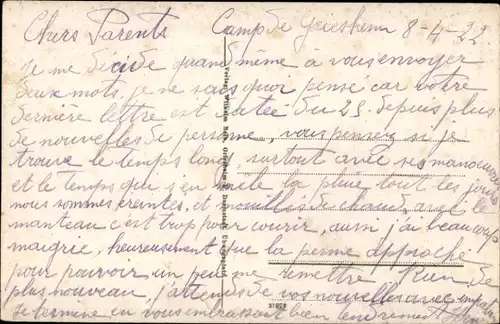 Chers Parents Camp de Griesheim 8-4-22
Je me décide quand même a vous envoyer
deux mots, je ne sais quoi pensé car votre
dernière lettre est datée du 25. depuis plus
de nouvelles de personne, vous pensez si je
trouve le temps long, surtout avec ses manoeuvres
et le temps qui s'en mêle la pluie tout les jours
nous sommes ereintes, et mouillés de chaud, avec le
manteau c'est trop pour courir, aussi j'ai beaucoup
maigrie, heureusement que la perme approche
pour pouvoir un peu me remettre Rien de
plus nouveau, j'attends de vos nouvelles avec
Je termine en vous embrassant bien tendrement